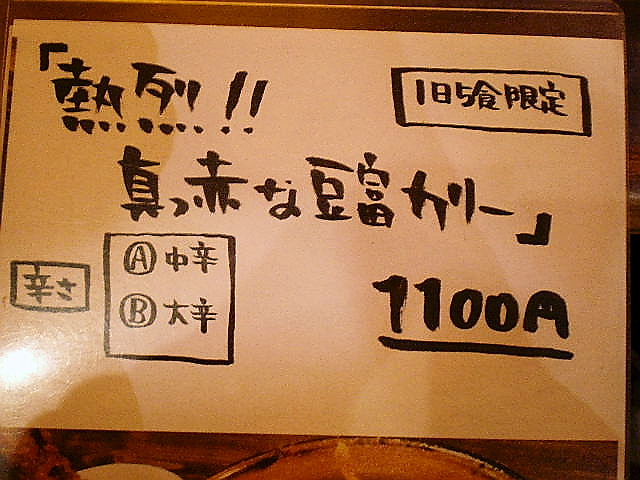 「熱烈!!
1日5食限定
真っ赤な豆富カリー」
辛さ
Ⓐ中辛
Ⓑ大辛
1100円